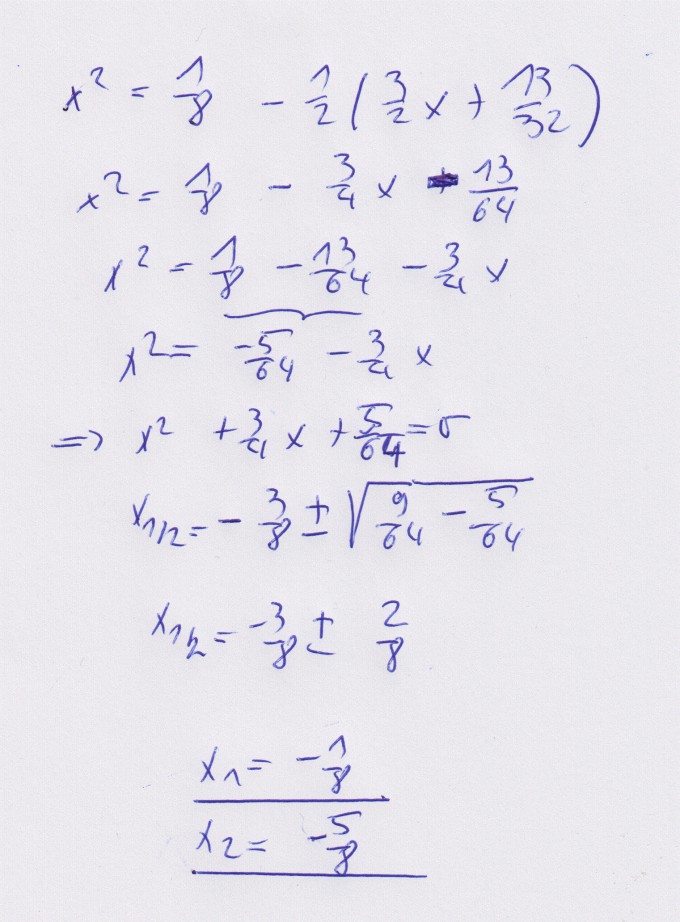 x² = 1/8 - 1/2 ( 3/2 x + 13/32 )
x² = 1/8 - 3/4 x - 13/64
x² = 1/8 - 13/64 - 3/4 x
x² = -5/64 - 3/4 x
=> x² + 3/4 x + 5/64 = 0
x1/2 = - 3/8 ± √(9/64 - 5/64)
x1/2 = -3/8 ± 2/8
x1 = - 1/8
x2 = - 5/8